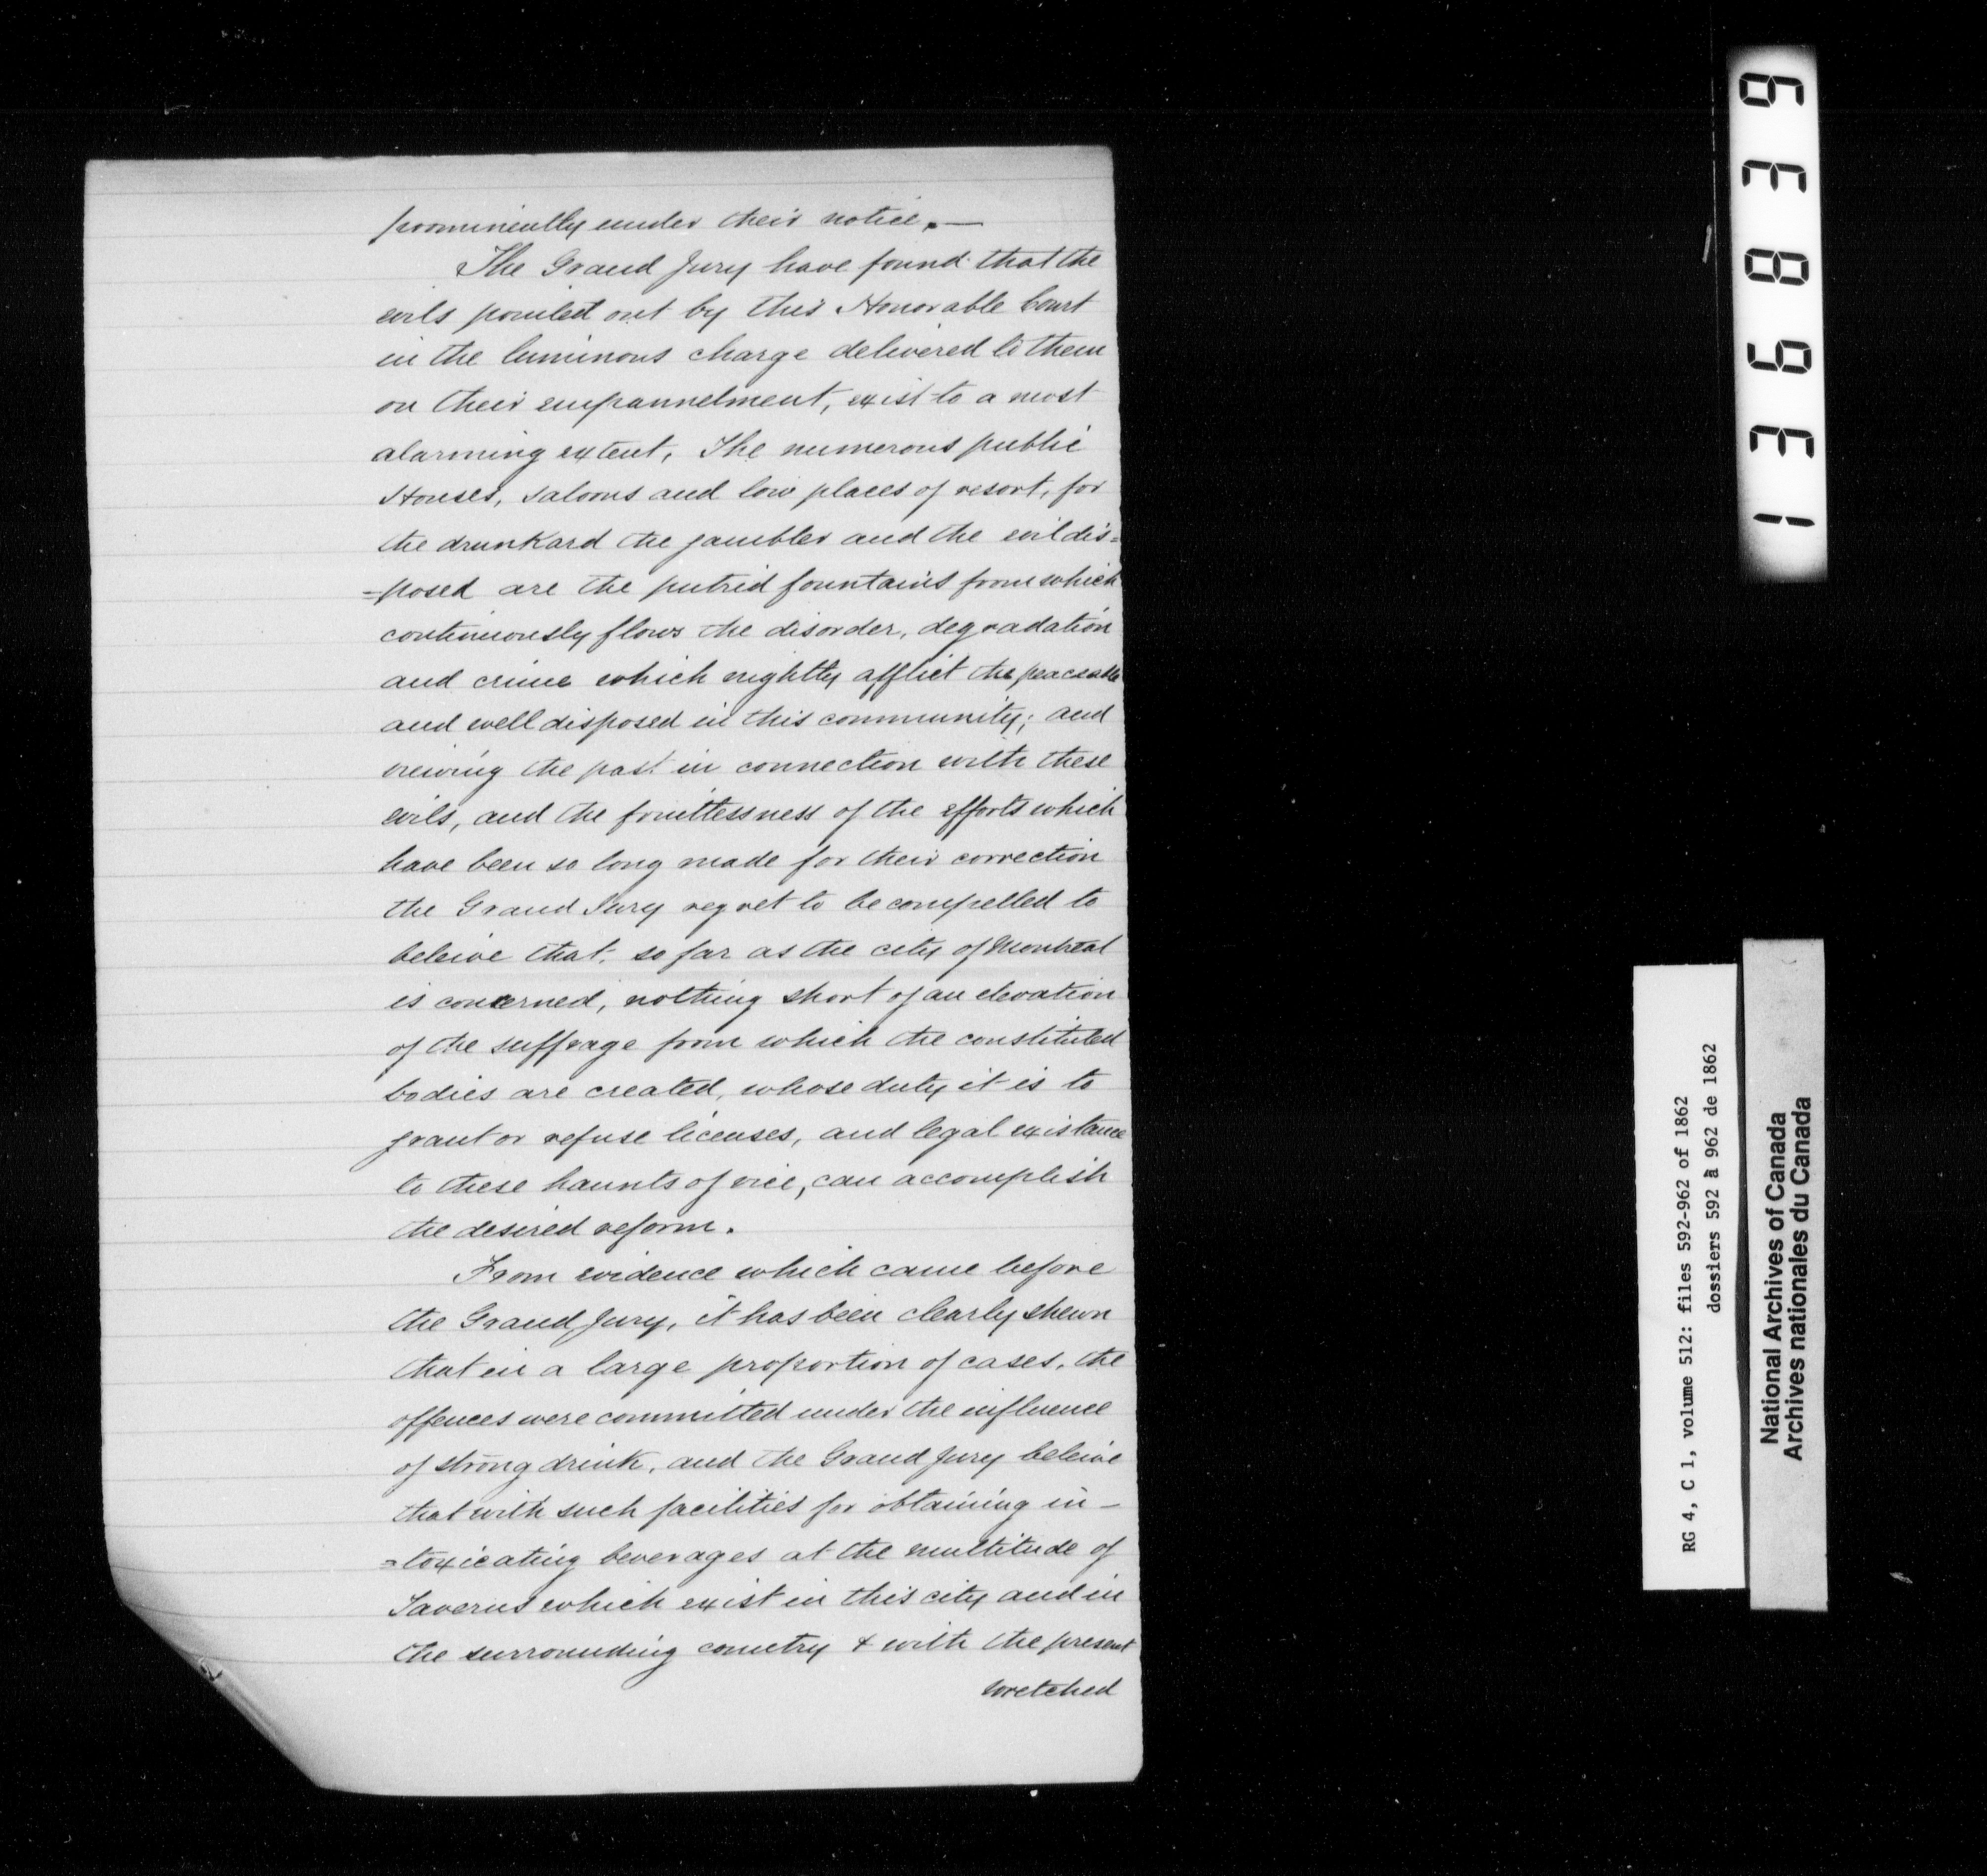 prominently under their notice. —
The Grand Jury have found that the
evils pointed out by this Honorable Court
in the luminous charge delivered to them
on their empannelment, exist to a most
alarming extent, The numerous public
Houses, saloons and low places of resort, for
the drunkard the gambler and the evil dis=
=posed are the putrid fountains from which
continuously flows the disorder, degradation
and crime which nightly afflict the peaceable
and well disposed in this community; and
viewing the past in connection with these
evils, and the fruitlessness of the efforts which
have been so long made for their correction
the Grand Jury regret to be compelled to
beleive that, so far as the city of Montreal
is concerned, nothing short of an elevation
of the suffrage from which the constituted
bodies are created, whose duty it is to
grant or refuse licenses, and legal existance
to these haunts of vice, can accomplish
the desired reform.
From evidence which came before
the Grand Jury, it has been clearly shewn
that in a large proportion of cases, the
offences were committed under the influence
of strong drink, and the Grand Jury beleive
that with such facilities for obtaining in-
=toxicating beverages at the multitude of
Taverns which exist in this city and in
the surrounding country & with the present
wretched
136839
RG 4, C 1, volume 512: files 592-962 of 1862
dossiers 592 à 962 de 1862
National Archives of Canada
Archives nationales du Canada